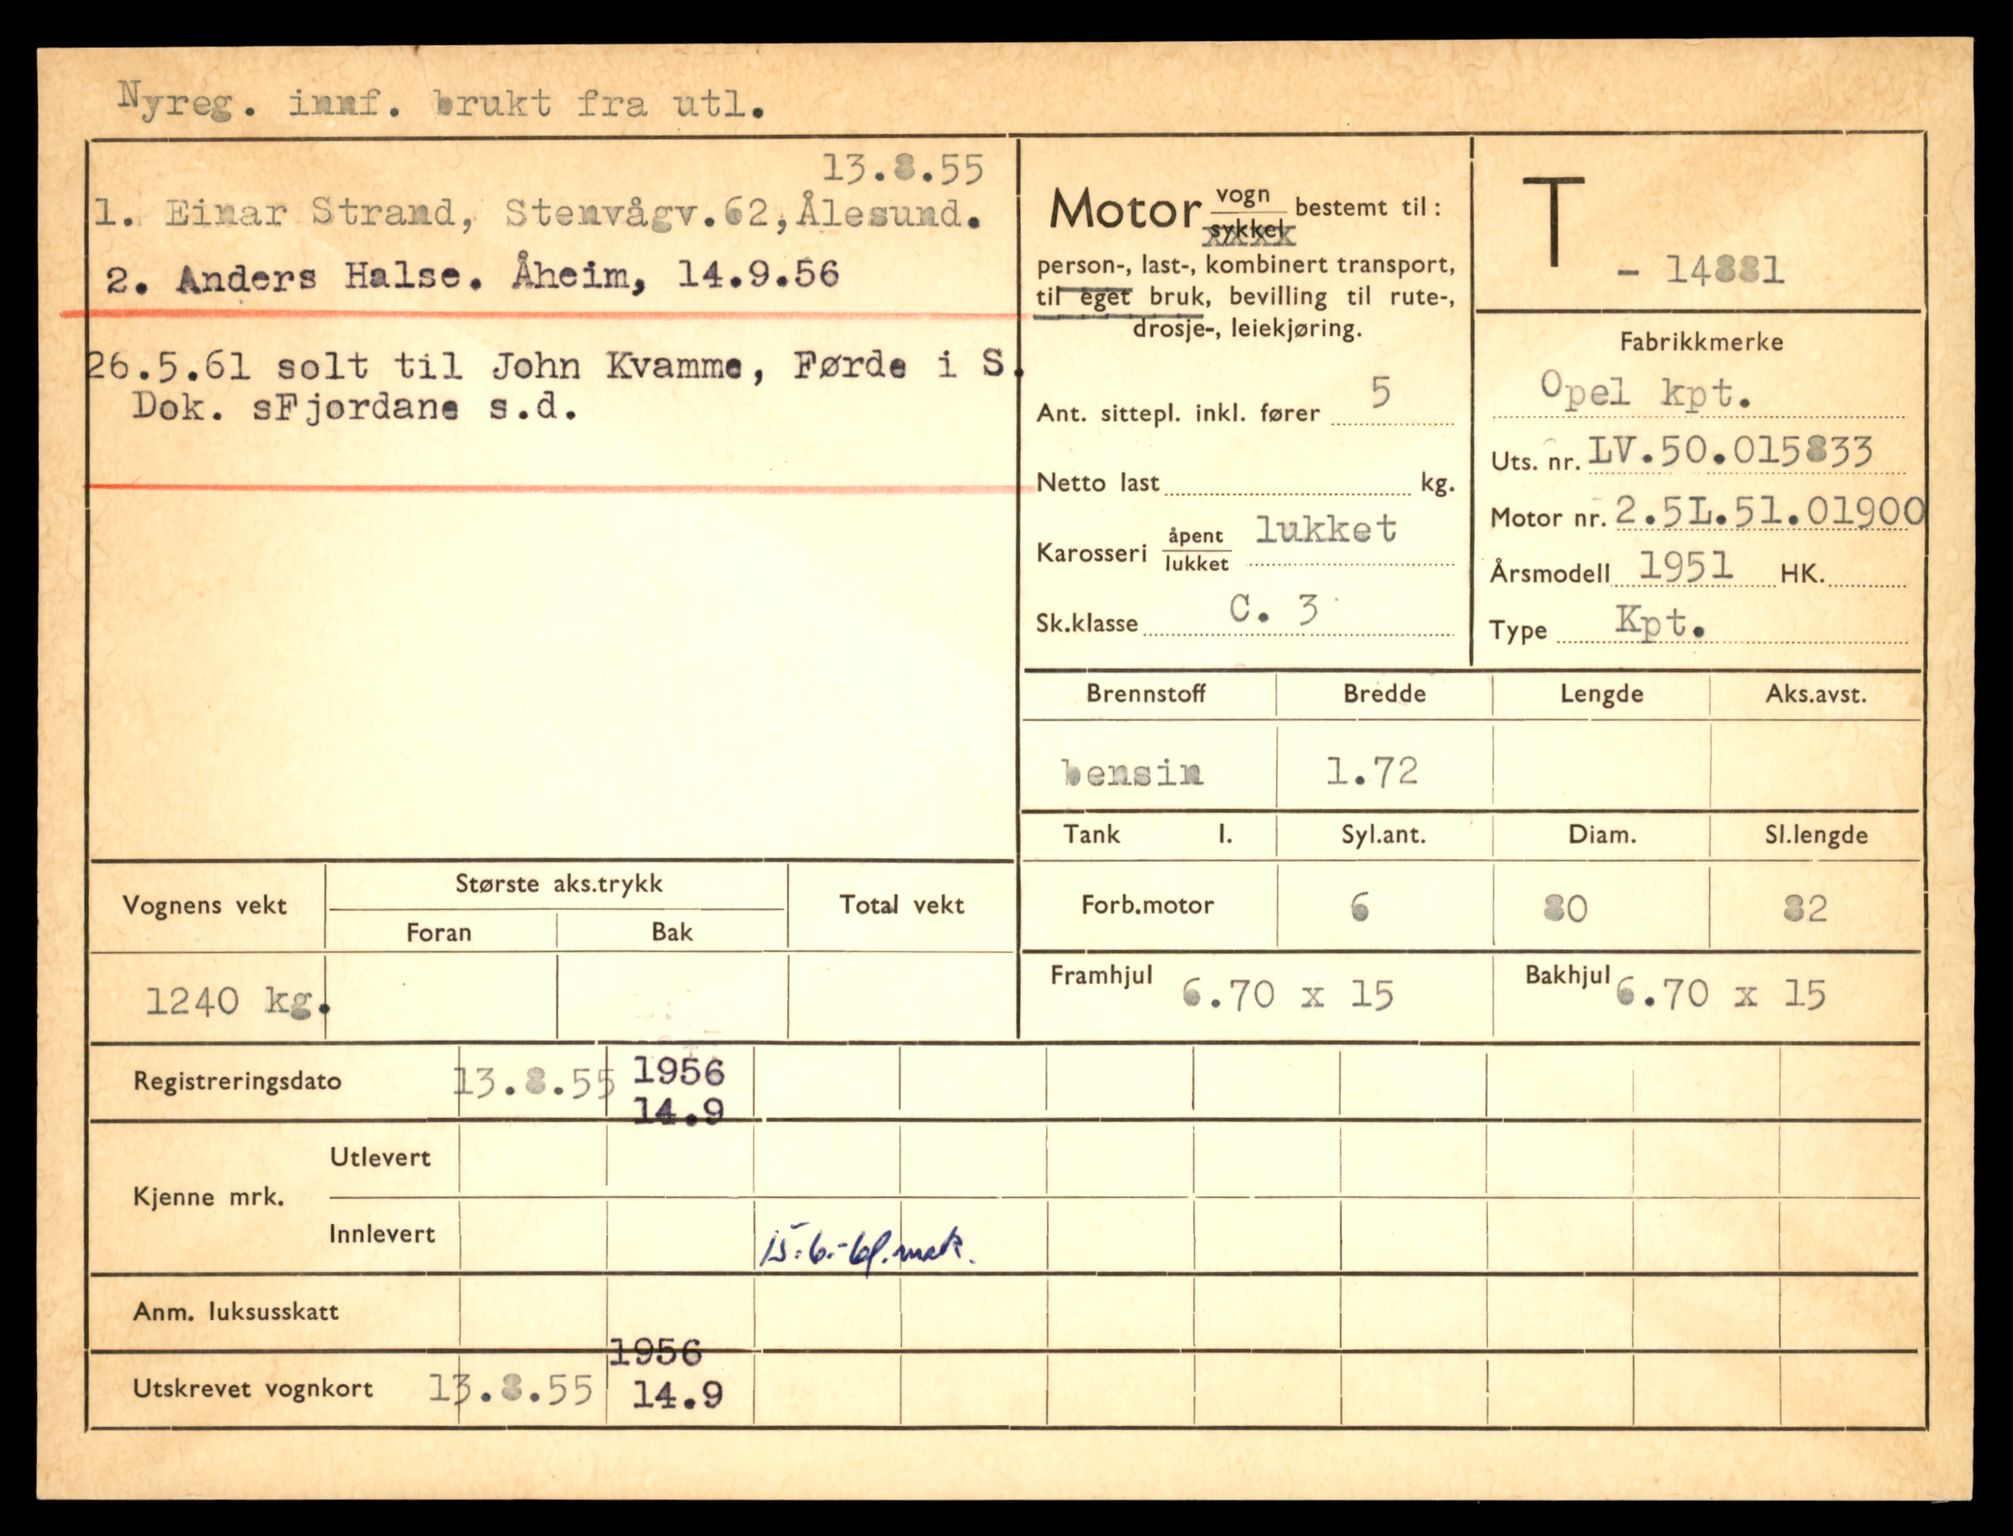 Nyreg. innf. brukt fra utl.
13.8.55
1. Einar Strand, Stenvågv.62,Ålesund.
2. Anders Halse. Åheim, 14.9.56
26.5.61 solt til John Kvamme, Førde i S.
Dok. sFjordane s.d.
Motor vogn/sykkel bestemt til:
person-, last-, kombinert transport,
til eget bruk, bevilling til rute-,
drosje-, leiekjøring.
Ant. sittepl. inkl. fører 5
Netto last kg.
Karosseri åpent/lukket lukket
Sk.klasse C. 3
T
- 14881
Fabrikkmerke
Opel kpt.
Uts. nr. LV.50.015833
Motor nr. 2.5L.51.01900
Årsmodell 1951 HK.
Type Kpt.
Brennstoff Bredde Lengde Aks.avst.
bensin 1.72
Tank l. Syl.ant. Diam. Sl.lengde
Forb.motor 6 80 82
Framhjul 6.70 x 15 Bakhjul 6.70 x 15
Vognens vekt Største aks.trykk Total vekt
Foran Bak
1240 kg.
Registreringsdato 13.8.55 1956
14.9
Kjenne mrk. Utlevert
Innlevert 15.6.-61.
Anm. luksusskatt
1956
Utskrevet vognkort 13.8.55 14.9